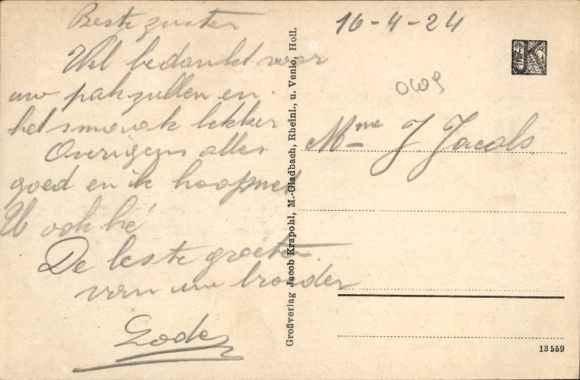 Beste zuster
Wel bedankt voor
uw pakzullen en
het smaak lekker
Overigens alles
goed en ik hoop met
U ook hé
De beste groeten
van uw broeder
Lode
16-4-24
Mme J. Jacobs
Großverlag Jacob Krapohl, M.-Gladbach, Rheinl., u. Venlo, Holl.
13559